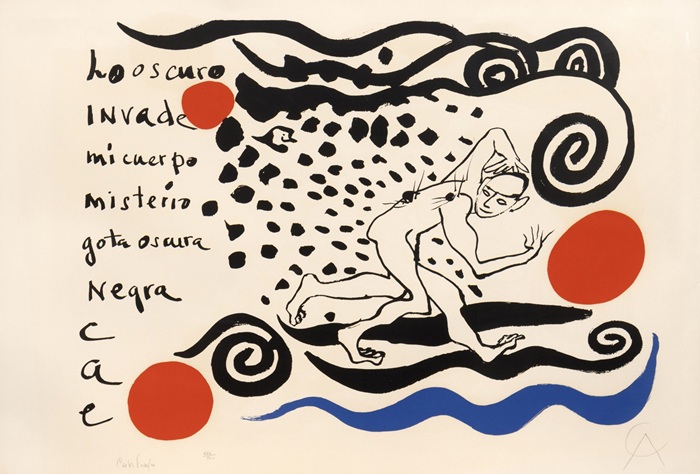 Lo oscuro
INVade
mi cuerpo
misterio
gota oscura
Negra
C
a
e
CA